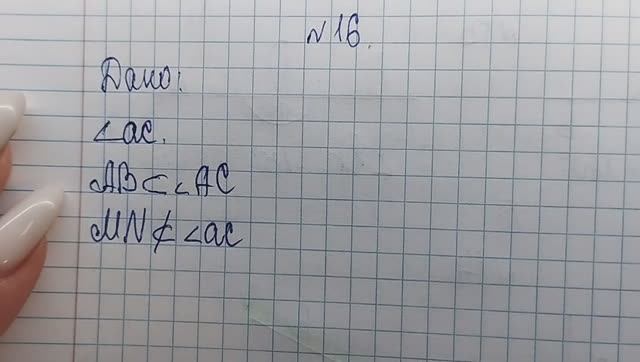 №16.
Дано:
∠ac.
AB⊂∠AC
MN⊄∠ac